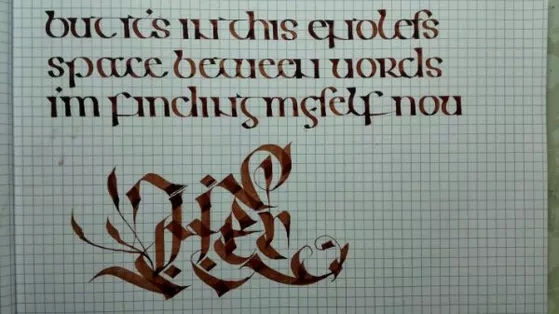 but it's in this endless
space between words
i'm finding myself now
Her